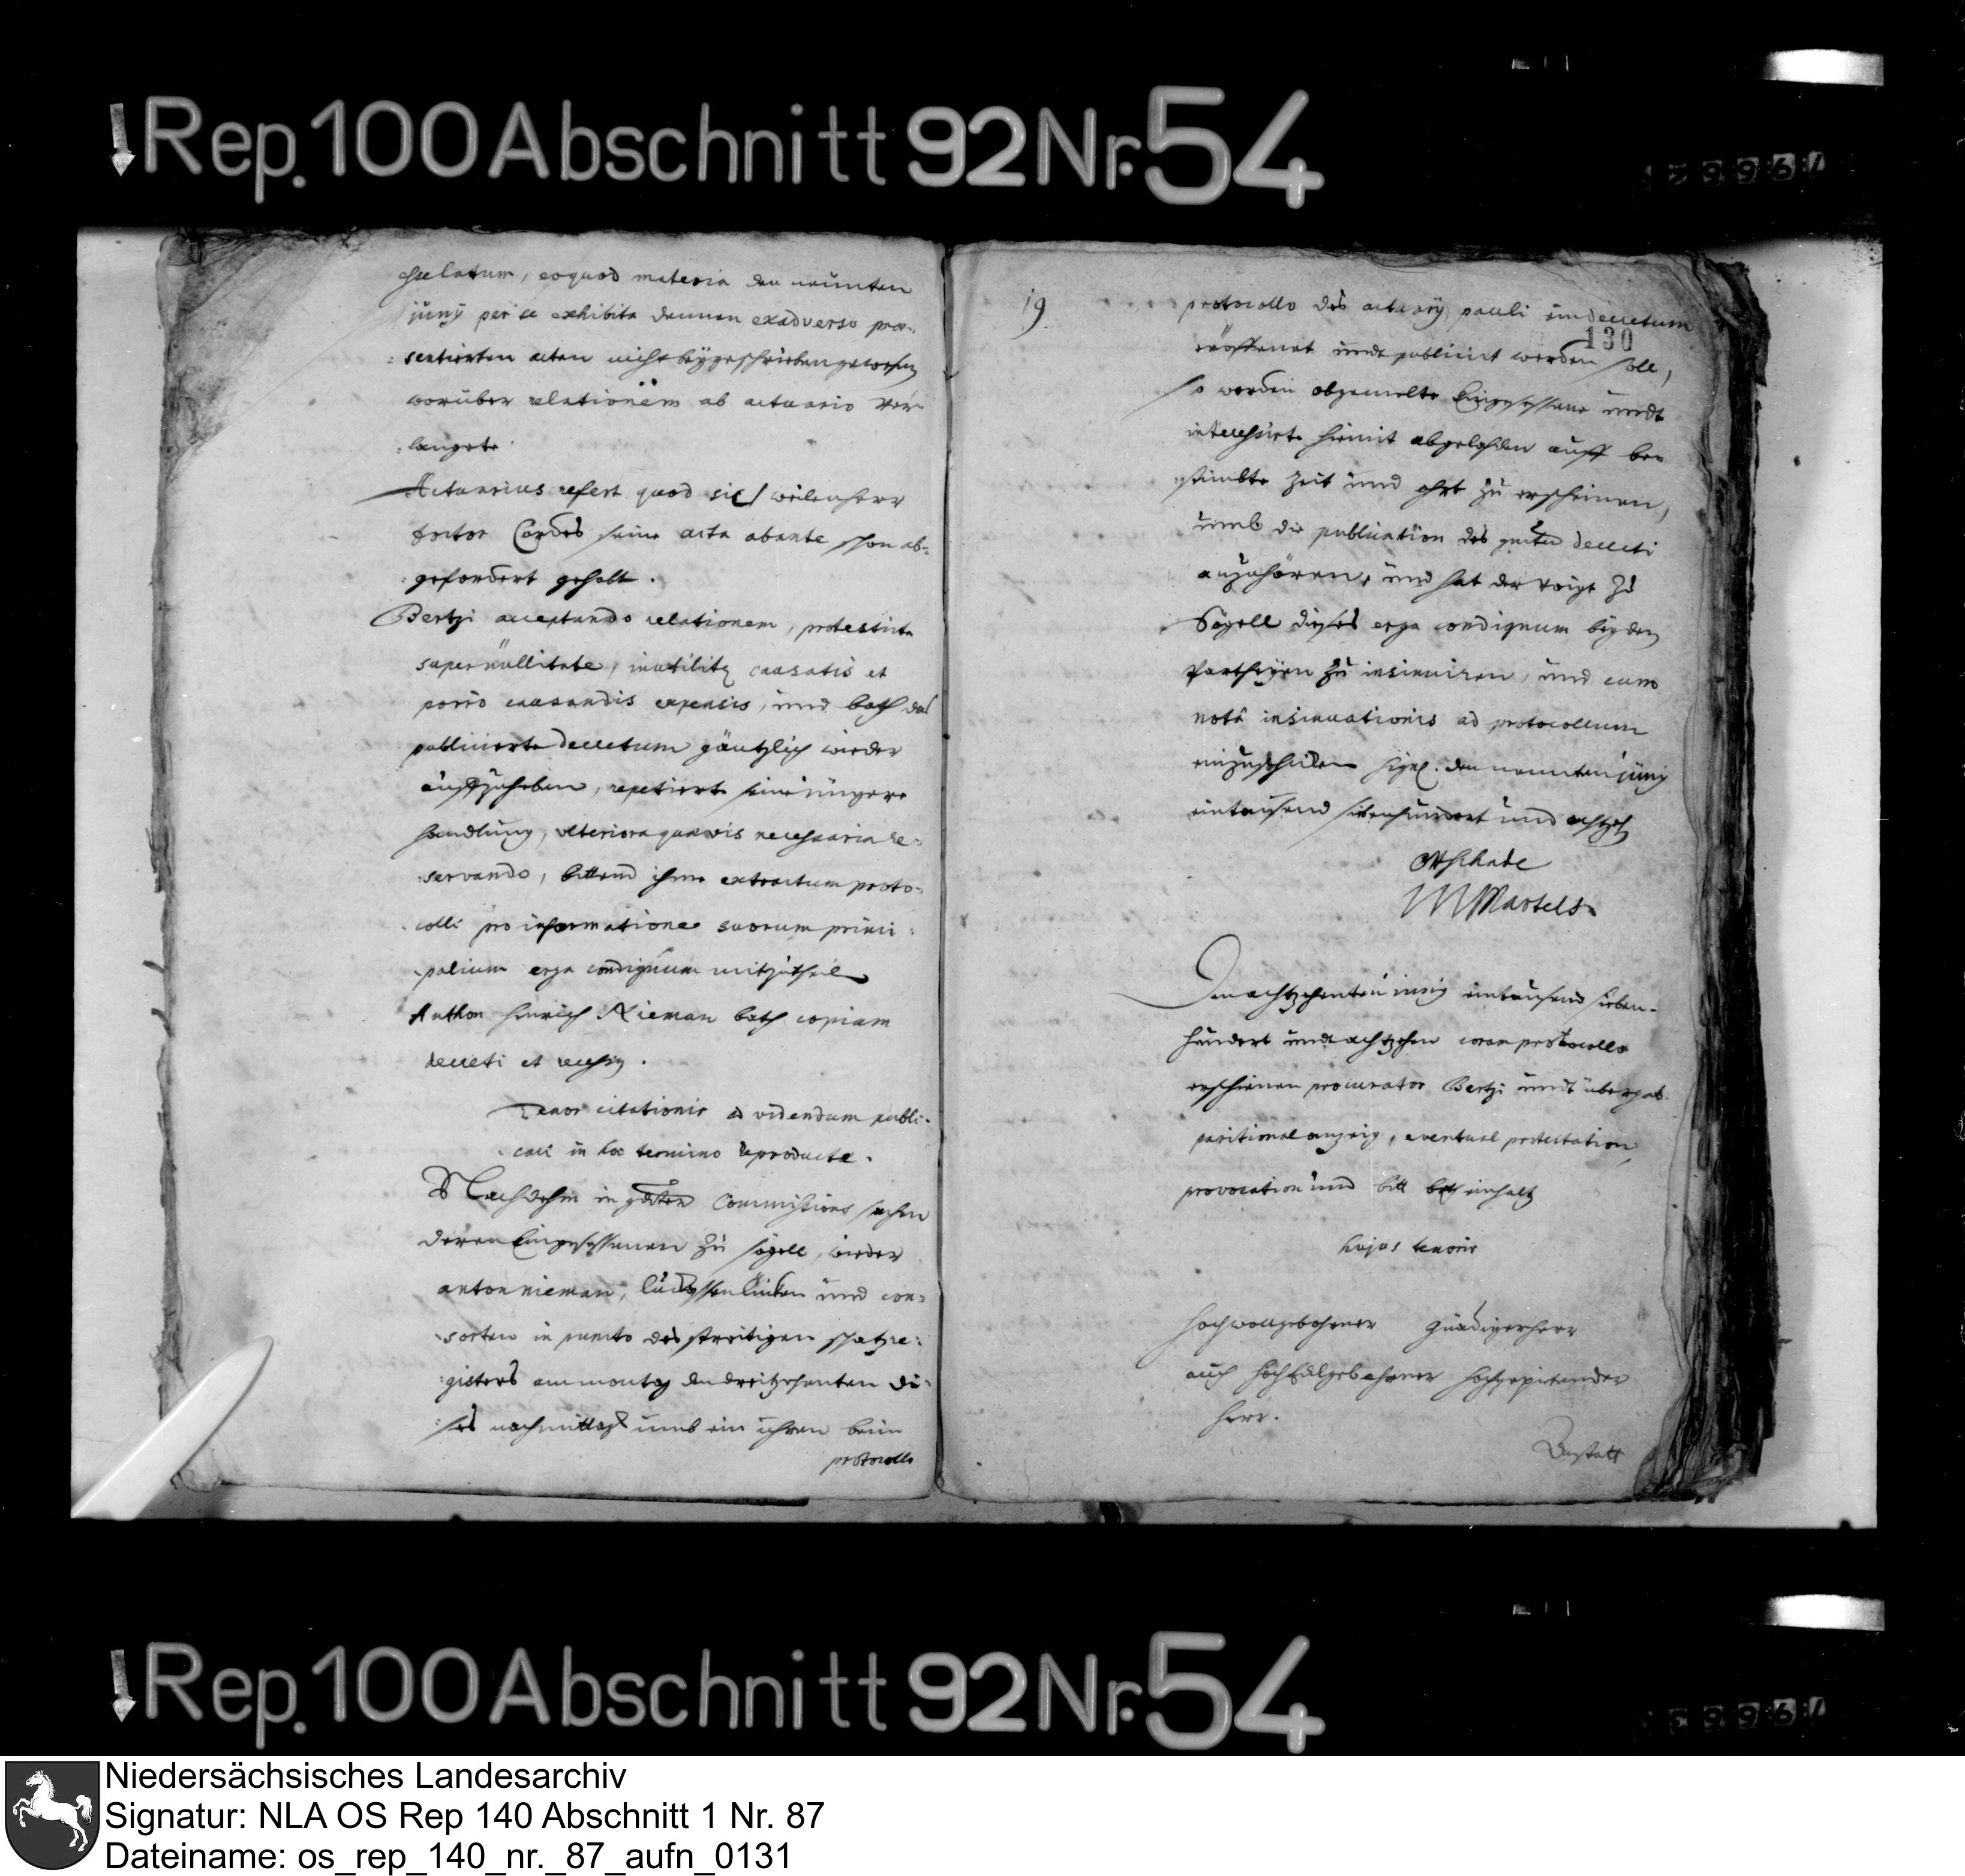 Rep. 100 Abschnitt 92 Nr. 54
gelatum, eoquod materia den neunten
juny per se exhibita dennen exadverso prae-
sentirten acten nicht beÿgeschrieben gewesen
worüber relationem ab actuario ver-
langete
Actuarius refert quod sic / weilen herr
doctor Cordes seine acta abante schon ab-
gefordert gehabt.
Bertzi acceptando relationem, protestirte
super nullitate, inutilits causatis et
porro causandis expensis, und bath das
publicirte decretum gäntzlich wieder
auffzuheben, repetirte seine jüngere
handlung, ulteriora quaevis necessaria re-
servando, bittend ihme extractum proto-
colli pro informatione suorum princi-
palium erga condignum mitzutheilen
Anthon Henrich Nieman bath copiam
decreti et recessus.
Tenor citationis ad videndum publi-
cari in hoc termino reproducta.
Nachdehm in gdten Commissions sachen
deren Eingesessenen zu Sögell, wieder
anton nieman, und con-
sorten in puncto des streitigen schatzre-
gisters am montag den dreitzehenten di-
ses nachmittags umb ein uhren beim
protocollo
19
protocollo des actuarÿ pauli ein decretum
130
eröffenet undt publicirt werden solle,
so werden obgemelte Eingesessene undt
interessirte hiemit abgeladen auff be-
stimbte zeit und ohrt zu erscheinen,
umb die publication des gmten decreti
anzuhören, und hat der Voigt zu
Sögell dieses erga condignum beÿden
Partheÿen zu insinuiren, und cum
nota insinuationis ad protocollum
einzuschicken sign. den neunten junÿ
eintausend siebenhundert und achtzeh
Schade
Martels
Den achtzehenten junÿ eintausend sieben-
hundert undt achtzehen coram protocollo
erschienen procurator Bertzi undt übergab
paritional anzeig, eventual protestation,
provocation und bitt bath einhalts
hujus tenoris
Hochwollgebohrner Gnädiger herr
auch HochEdelgebohrner hochgepietender
herr.
Anstatt
Rep. 100 Abschnitt 92 Nr. 54
Niedersächsisches Landesarchiv
Signatur: NLA OS Rep 140 Abschnitt 1 Nr. 87
Dateiname: os_rep_140_nr._87_aufn_0131